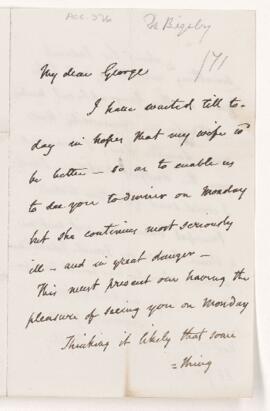 ACC. 326
Dr Bigsby
171
My dear George
I have waited till to-
day in hopes that my wife wd
be better – so as to enable us
to see you to dinner on Monday
but she continues most seriously
ill – and in great danger –
This must prevent our having the
pleasure of seeing you on Monday
Thinking it likely that some
=thing